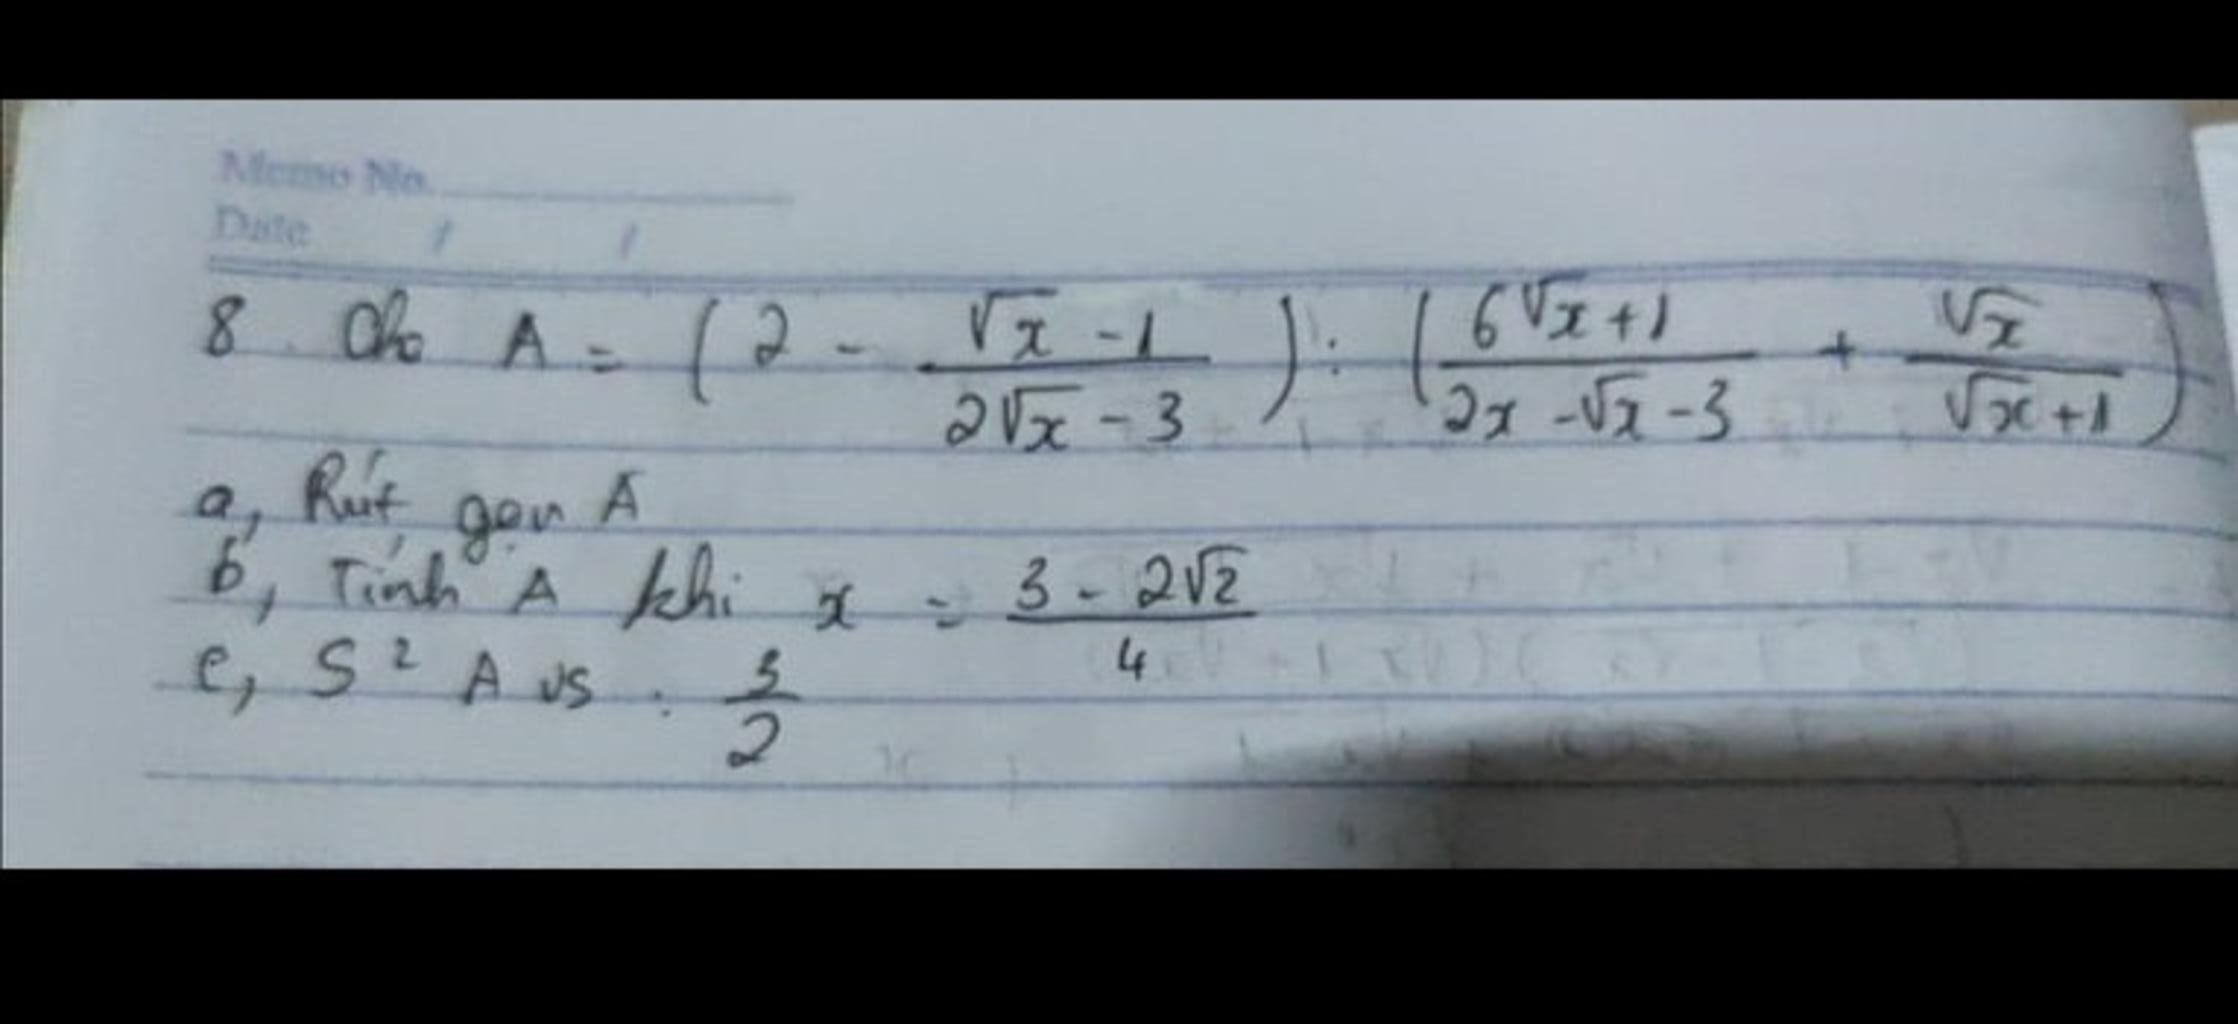 Memo No.
Date / /
8. Cho A = ( 2 - (√x - 1)/(2√x - 3) ) : ( (6√x + 1)/(2x - √x - 3) + √x/(√x + 1) )
a, Rút gọn A
b, Tính A khi x = (3 - 2√2)/4
c, S² A vs. 3/2